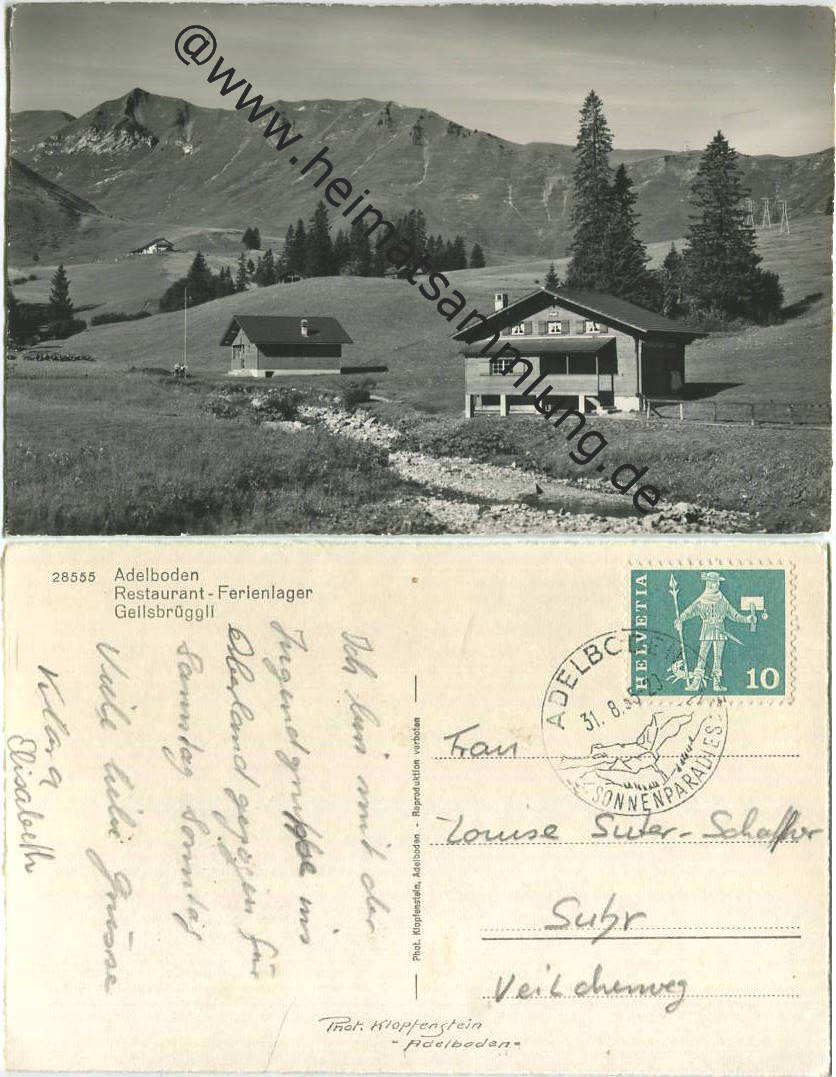 @www.heimatsammlung.de
28555 Adelboden
Restaurant - Ferienlager
Geilsbrüggli
Ich bin mit der
Jugendgruppe ins
Oberland gezogen für
Samstag Sonntag
Viele liebe Grüsse
Klara
Elisabeth
Phot. Klopfenstein, Adelboden - Reproduktion verboten
HELVETIA
10
ADELBODEN
31. 8.
SONNENPARADIES
Frau
Louise Suter-Schaffer
Suhr
Veilchenweg
Phot. Klopfenstein
- Adelboden -